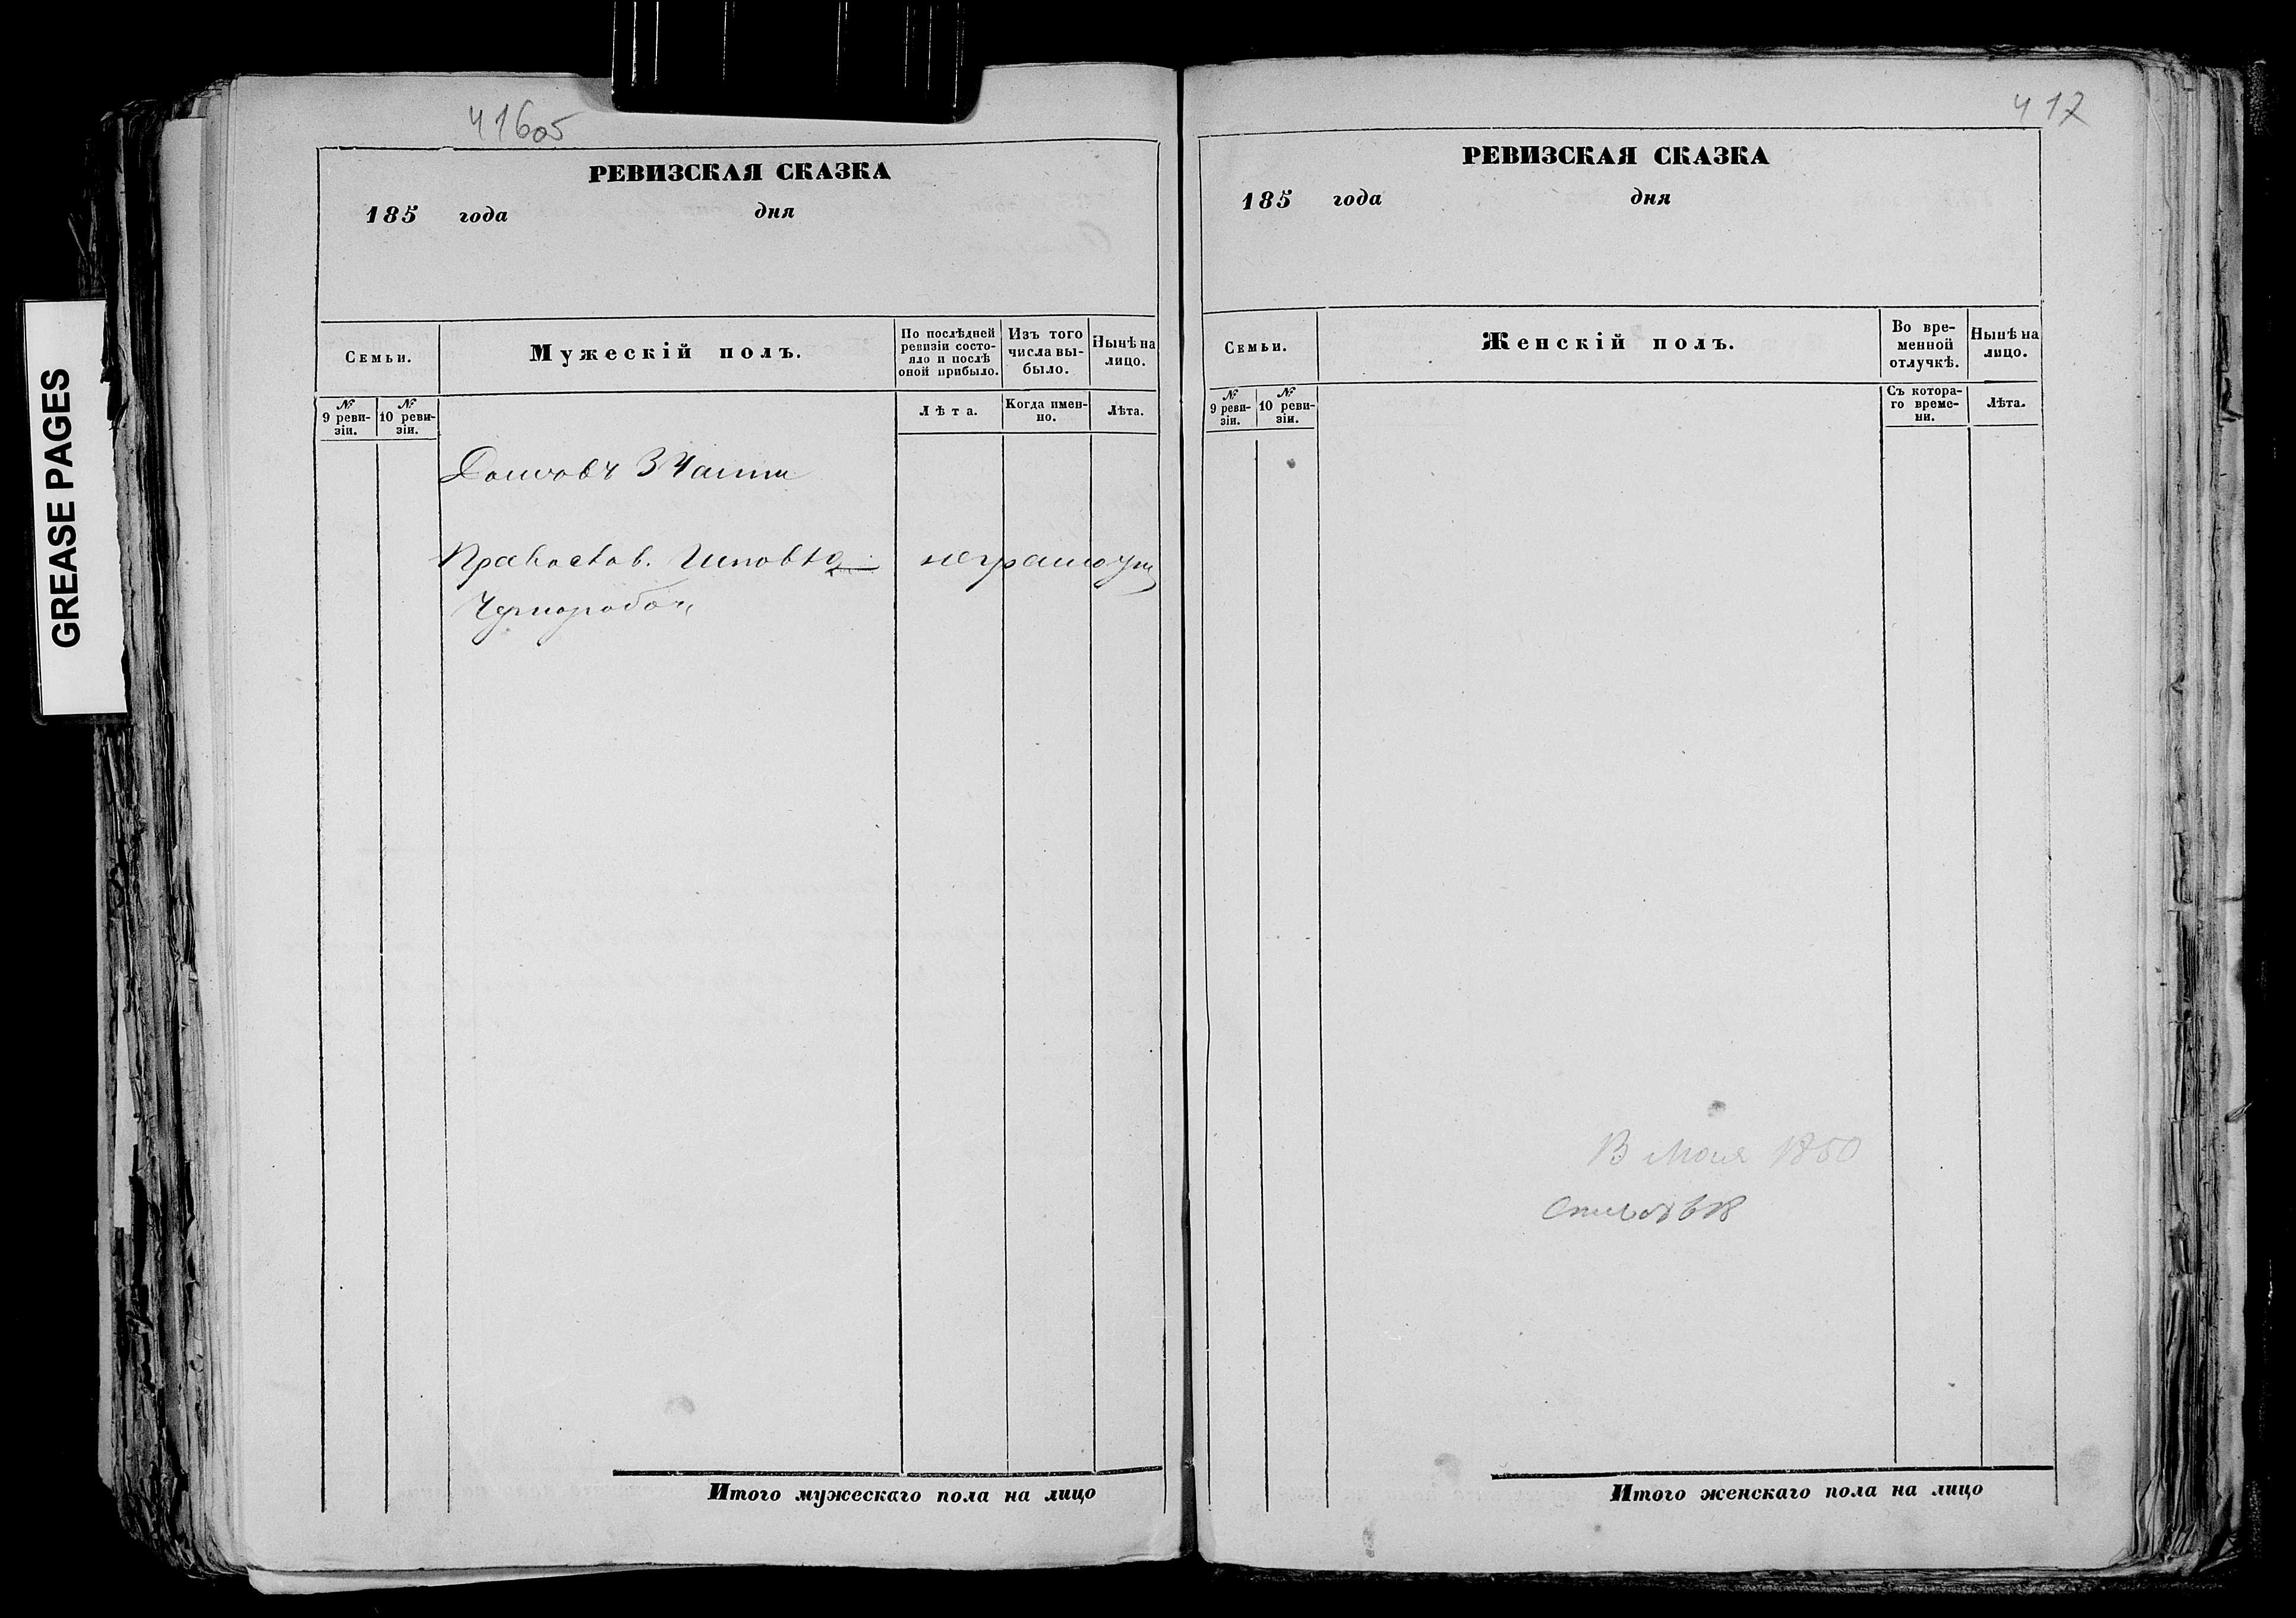 GREASE PAGES
416об
РЕВИЗСКАЯ СКАЗКА
185 года дня
Семьи.
Мужескій полъ.
По послѣдней ревизіи состояло и послѣ оной прибыло.
Изъ того числа выбыло.
Нынѣ на лицо.
№ 9 ревизіи.
№ 10 ревизіи.
Лѣта.
Когда именно.
Лѣта.
Домовъ 3 Части
Православ.
Чернорабоч
417
РЕВИЗСКАЯ СКАЗКА
185 года дня
Семьи.
Женскій полъ.
Во временной отлучкѣ.
Нынѣ на лицо.
№ 9 ревизіи.
№ 10 ревизіи.
Съ котораго времени.
Лѣта.
В 1850
Итого мужескаго пола на лицо
Итого женскаго пола на лицо